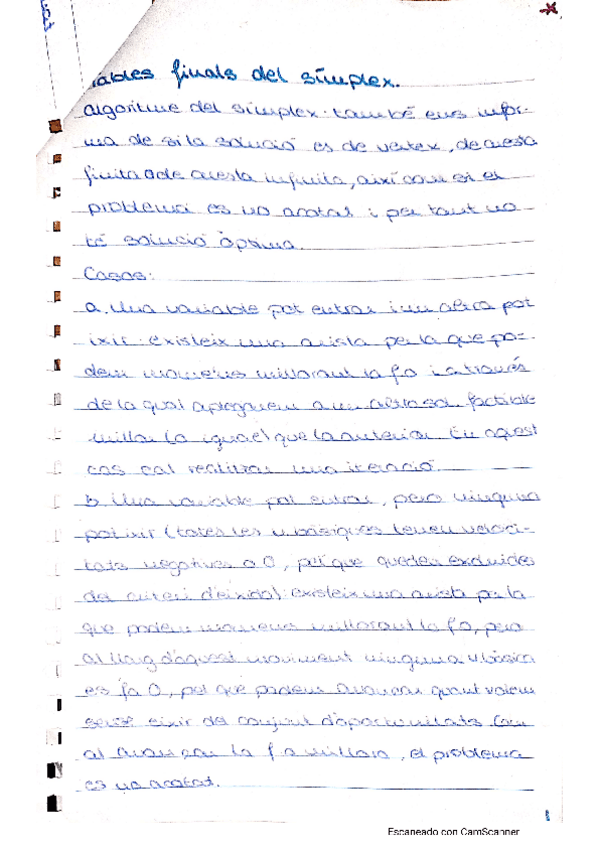 Taules finals del símplex.
algoritme del símplex: també ens infor-
ma de si la solució es de vertex, de aresta
finita o de aresta infinita, així com si el
problema es no acotat i per tant no
té solució òptima.
Casos:
a. Una variable pot entrar i un altra pot
ixir: existeix una aresta per la que po-
dem moure'ns millorant la f.o i a través
de la qual aplegarem a un altra sol. factible
millor (o igual) que la anterior. En aquest
cas cal realitzar una iteració.
b. Una variable pot entrar, pero ninguna
pot ixir (totes les v. bàsiques tenen veloci-
tats negatives o 0, pel que queden excluides
del criteri d'eixida): existeix una aresta per la
que podem moure'ns millorant la f.o, pero
al llarg d'aquest moviment ninguna v. bàsica
es fa 0, pel que podem avançar quant volem
sense eixir del conjunt d'oportunitats. Com
al avançar la f.o millora, el problema
es no acotat.
1
Escaneado con CamScanner